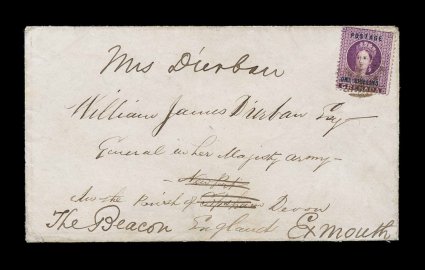 POSTAGE
ONE SHILLING
GRENADA
Mrs Durban
William James Durban Esqr
General in her Majesty army
In the Parish of Devon
The Beacon England Exmouth